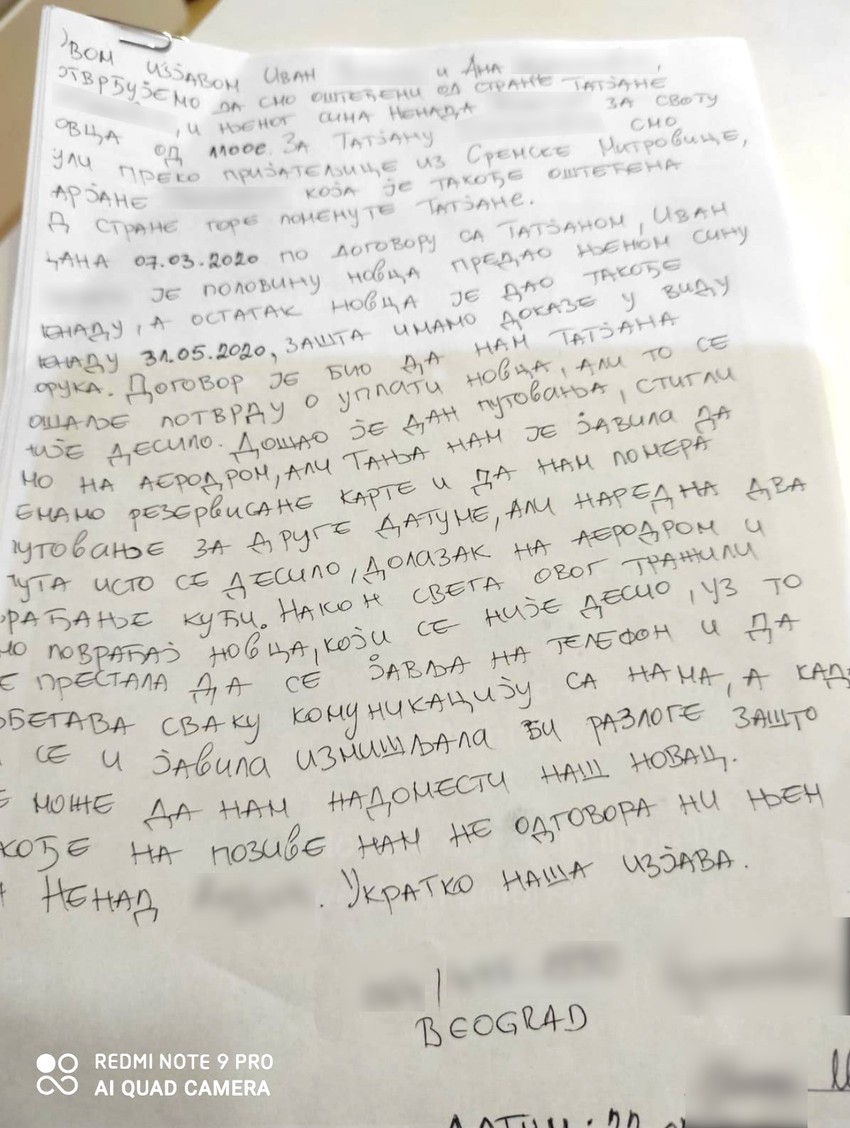 ВОМ ИЗЈАВОМ ИВАН И АНА ,
ОТВРЂУЈЕМО ДА СМО ОШТЕЋЕНИ ОД СТРАНЕ ТАТЈАНЕ
, И ЊЕНОГ СИНА НЕНАДА ЗА СВОТУ
ОВЦА ОД 1100Е. ЗА ТАТЈАНУ СМО
УЛИ ПРЕКО ПРИЈАТЕЉИЦЕ ИЗ СРЕМСКЕ МИТРОВИЦЕ,
АРЈАНЕ КОЈА ЈЕ ТАКОЂЕ ОШТЕЋЕНА
Д СТРАНЕ ГОРЕ ПОМЕНУТЕ ТАТЈАНЕ.
ДАНА 07.03.2020 ПО ДОГОВОРУ СА ТАТЈАНОМ, ИВАН
ЈЕ ПОЛОВИНУ НОВЦА ПРЕДАО ЊЕНОМ СИНУ
ЕНАДУ, А ОСТАТАК НОВЦА ЈЕ ДАО ТАКОЂЕ
ЕНАДУ 31.05.2020, ЗАШТА ИМАМО ДОКАЗЕ У ВИДУ
ОРУКА. ДОГОВОР ЈЕ БИО ДА НАМ ТАТЈАНА
ОШАЉЕ ПОТВРДУ О УПЛАТИ НОВЦА, АЛИ ТО СЕ
НИЈЕ ДЕСИЛО. ДОШАО ЈЕ ДАН ПУТОВАЊА, СТИГЛИ
МО НА АЕРОДРОМ, АЛИ ТАЊА НАМ ЈЕ ЈАВИЛА ДА
ЕМАМО РЕЗЕРВИСАНЕ КАРТЕ И ДА НАМ ПОМЕРА
ПУТОВАЊЕ ЗА ДРУГЕ ДАТУМЕ, АЛИ НАРЕДНА ДВА
ПУТА ИСТО СЕ ДЕСИЛО, ДОЛАЗАК НА АЕРОДРОМ И
РАЋАЊЕ КУЋИ. НАКОН СВЕГА ОВОГ ТРАЖИЛИ
МО ПОВРАЋАЈ НОВЦА, КОЈИ СЕ НИЈЕ ДЕСИО, УЗ ТО
Е ПРЕСТАЛА ДА СЕ ЈАВЉА НА ТЕЛЕФОН И ДА
ЗБЕГАВА СВАКУ КОМУНИКАЦИЈУ СА НАМА, А КАД
СЕ И ЈАВИЛА ИЗМИШЉАЛА БИ РАЗЛОГЕ ЗАШТО
Е МОЖЕ ДА НАМ НАДОМЕСТИ НАШ НОВАЦ.
КОЂЕ НА ПОЗИВЕ НАМ НЕ ОДГОВОРА НИ ЊЕН
НЕНАД . УКРАТКО НАША ИЗЈАВА.
BEOGRAD
REDMI NOTE 9 PRO
AI QUAD CAMERA